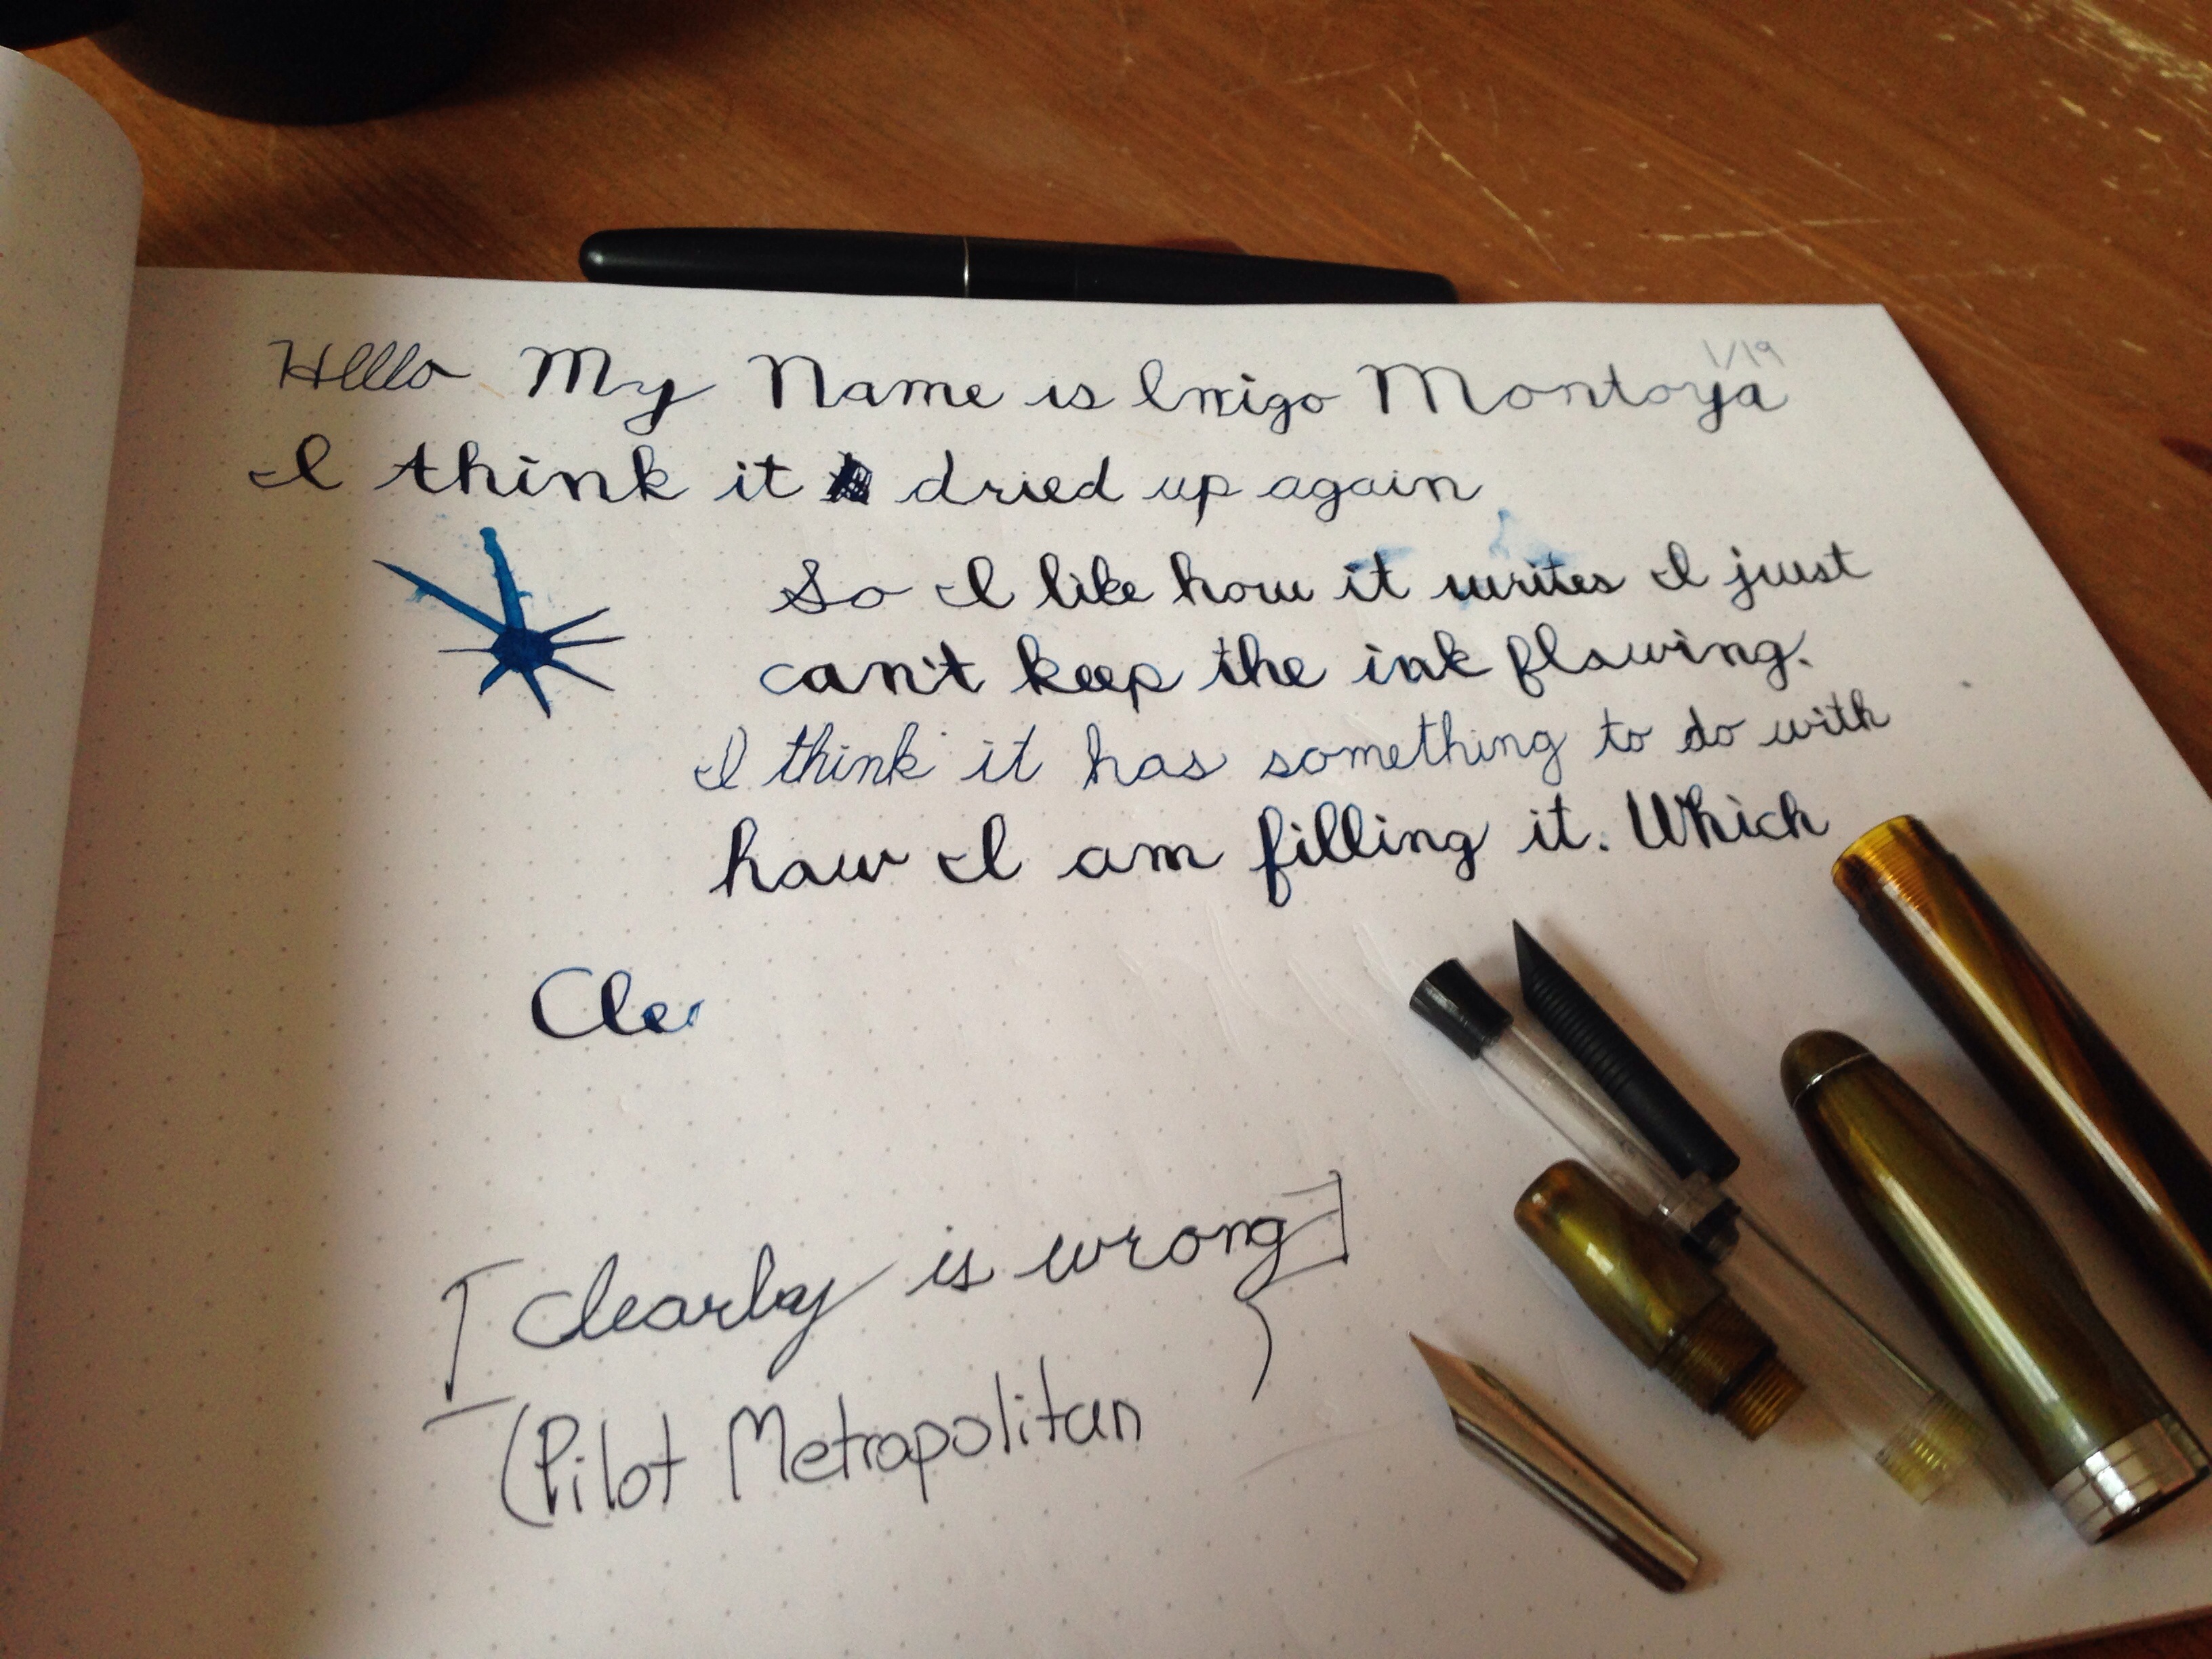 1/19
Hello My Name is Inigo Montoya
I think it dried up again
So I like how it writes I just
can't keep the ink flowing.
I think it has something to do with
how I am filling it. Which
Cle
[Clearly is wrong]
(Pilot Metropolitan